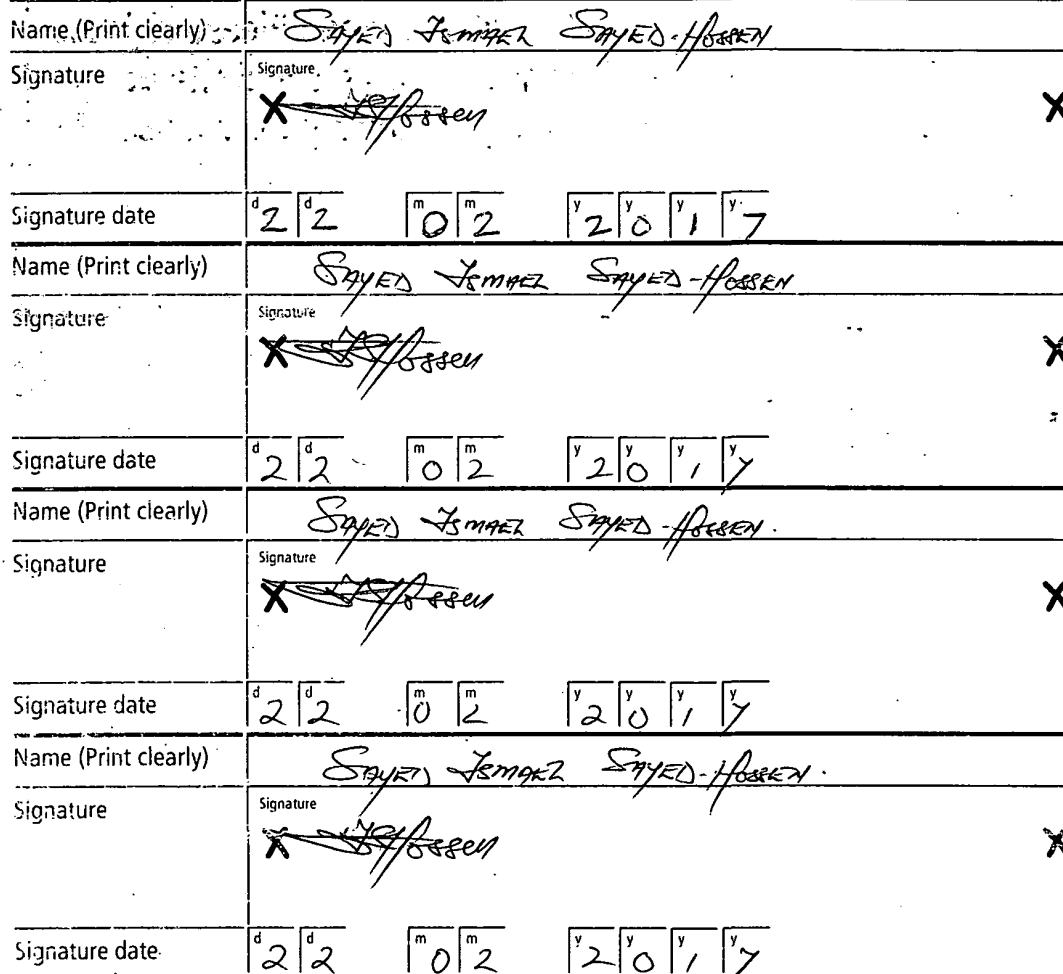 Name (Print clearly) SAYED ISMAEL SAYED-HOSSEN
Signature Signature
X Hossen X
Signature date d2 d2 m0 m2 y2 y0 y1 y7
Name (Print clearly) SAYED ISMAEL SAYED-HOSSEN
Signature Signature
X Hossen X
Signature date d2 d2 m0 m2 y2 y0 y1 y7
Name (Print clearly) SAYED ISMAEL SAYED-HOSSEN.
Signature Signature
X Hossen X
Signature date d2 d2 m0 m2 y2 y0 y1 y7
Name (Print clearly) SAYED ISMAEL SAYED-HOSSEN.
Signature Signature
X Hossen X
Signature date d2 d2 m0 m2 y2 y0 y1 y7